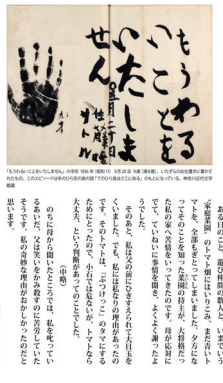 もうわる
いことを
いたしま
せん
「もうわるいことをいたしません」の手形 1936年(昭和11) 5月20日 9歳(満8歳)。いたずらのお仕置きに書か
されたもの。このエピソードは手のひら形の絵の話「てのひら島はどこにある」のもとになっている。神奈川近代文学
館蔵
ある日のこと、遊び仲間の数人と、いまでいう
「家庭菜園」のトマト畑にはいりこみ、まだ青いト
マトを、全部もぎとってしまいました。夕方にな
ってそのことを知った菜園の持主が、大将格だっ
たわが家へ苦情をいってきたのです。母が応対に
でて、ていねいに事情を聞き、よくよく謝ったよ
うでした。
そのあと、私は父の前にひきすえられて大目玉を
くいました。でも、私には私なりの理由があったの
です。そのトマトは、「ぶつけっこ」のタマにする
ためにとったので、小石では危ないが、トマトなら
大丈夫、という判断があってのことでした。
(中略)
のちに母から聞いたところでは、私を叱ってい
るあいだ、父は笑いをかみ殺すのに苦労していた
そうです。私の奇妙な理由がおかしかったのだと
思います。